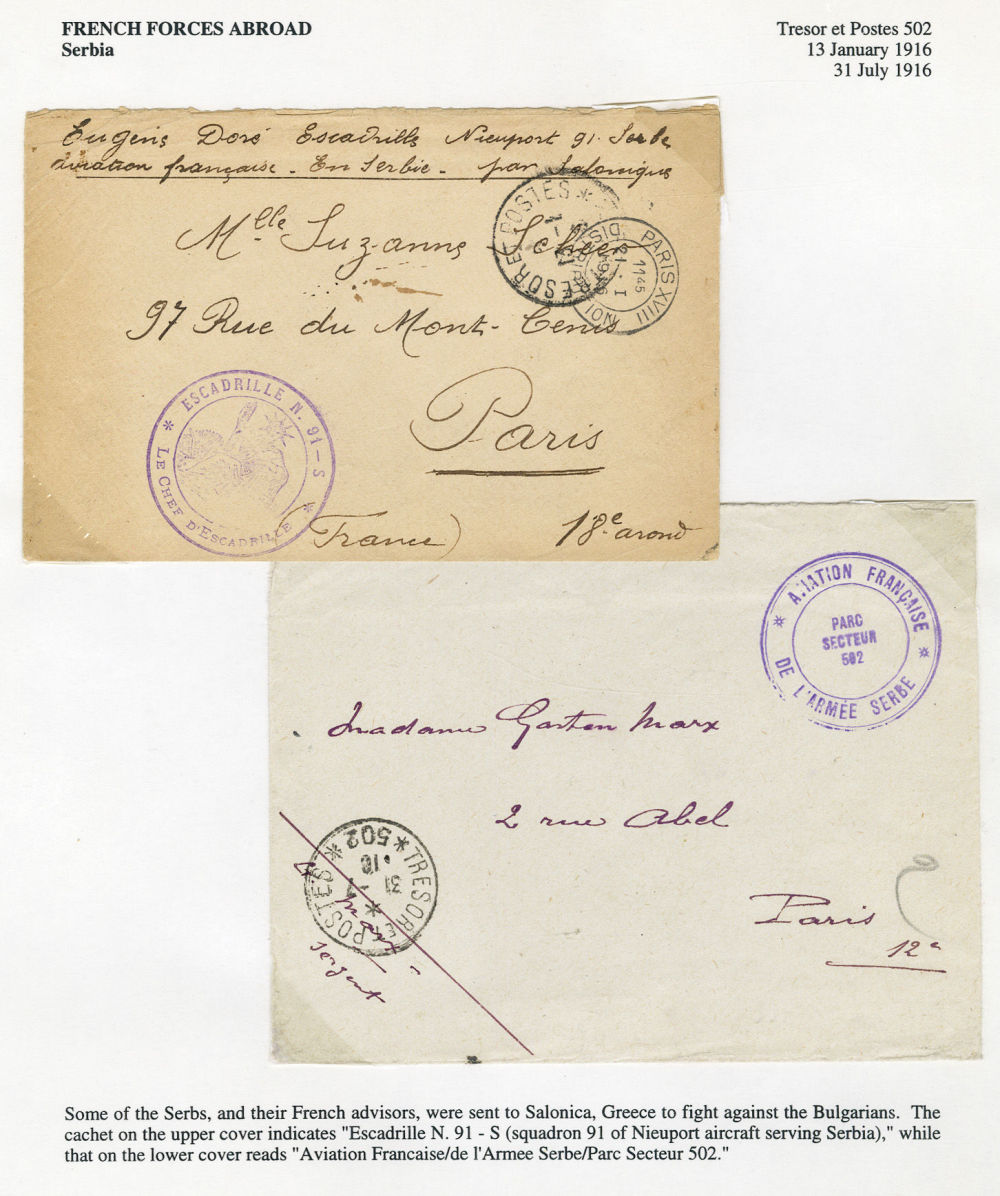 FRENCH FORCES ABROAD
Serbia
Tresor et Postes 502
13 January 1916
31 July 1916
Eugène Doré Escadrille Nieuport 91. Serbe
Aviation française - En Serbie - par Salonique
Mlle Suzanne
97 Rue du Mont-Cenis
Paris
(France) 18e arond
TRESOR ET POSTES *
PARIS XVIII
1145
21 - I
ESCADRILLE N. 91 - S
* LE CHEF D'ESCADRILLE *
* AVIATION FRANÇAISE *
DE L'ARMÉE SERBE
PARC
SECTEUR
502
Madame Gaston Marx
2 rue Abel
Paris
12e
TRESOR ET POSTES * 502 *
31
16
Marx
sergent
Some of the Serbs, and their French advisors, were sent to Salonica, Greece to fight against the Bulgarians. The
cachet on the upper cover indicates "Escadrille N. 91 - S (squadron 91 of Nieuport aircraft serving Serbia)," while
that on the lower cover reads "Aviation Francaise/de l'Armee Serbe/Parc Secteur 502."